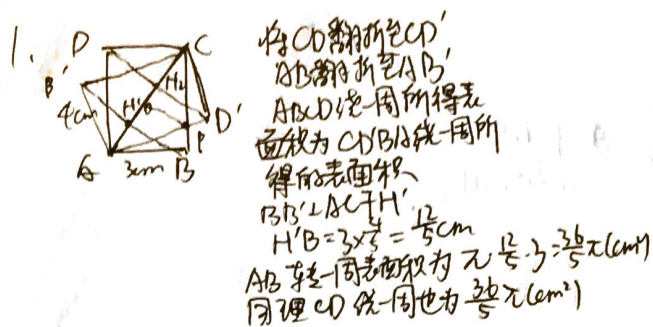 1.
D
C
B'
H₂
4cm
H'
D'
P
A
3cm
B
将CD翻折至CD'
AB翻折至AB'
ABCD绕一周所得表
面积为CD'B'A绕一周所
得的表面积
BB'⊥AC于H'
H'B=3×4/5=12/5cm
AB转一周表面积为π·12/5·3=36/5π(cm²)
同理CD绕一周也为36/5π(cm²)